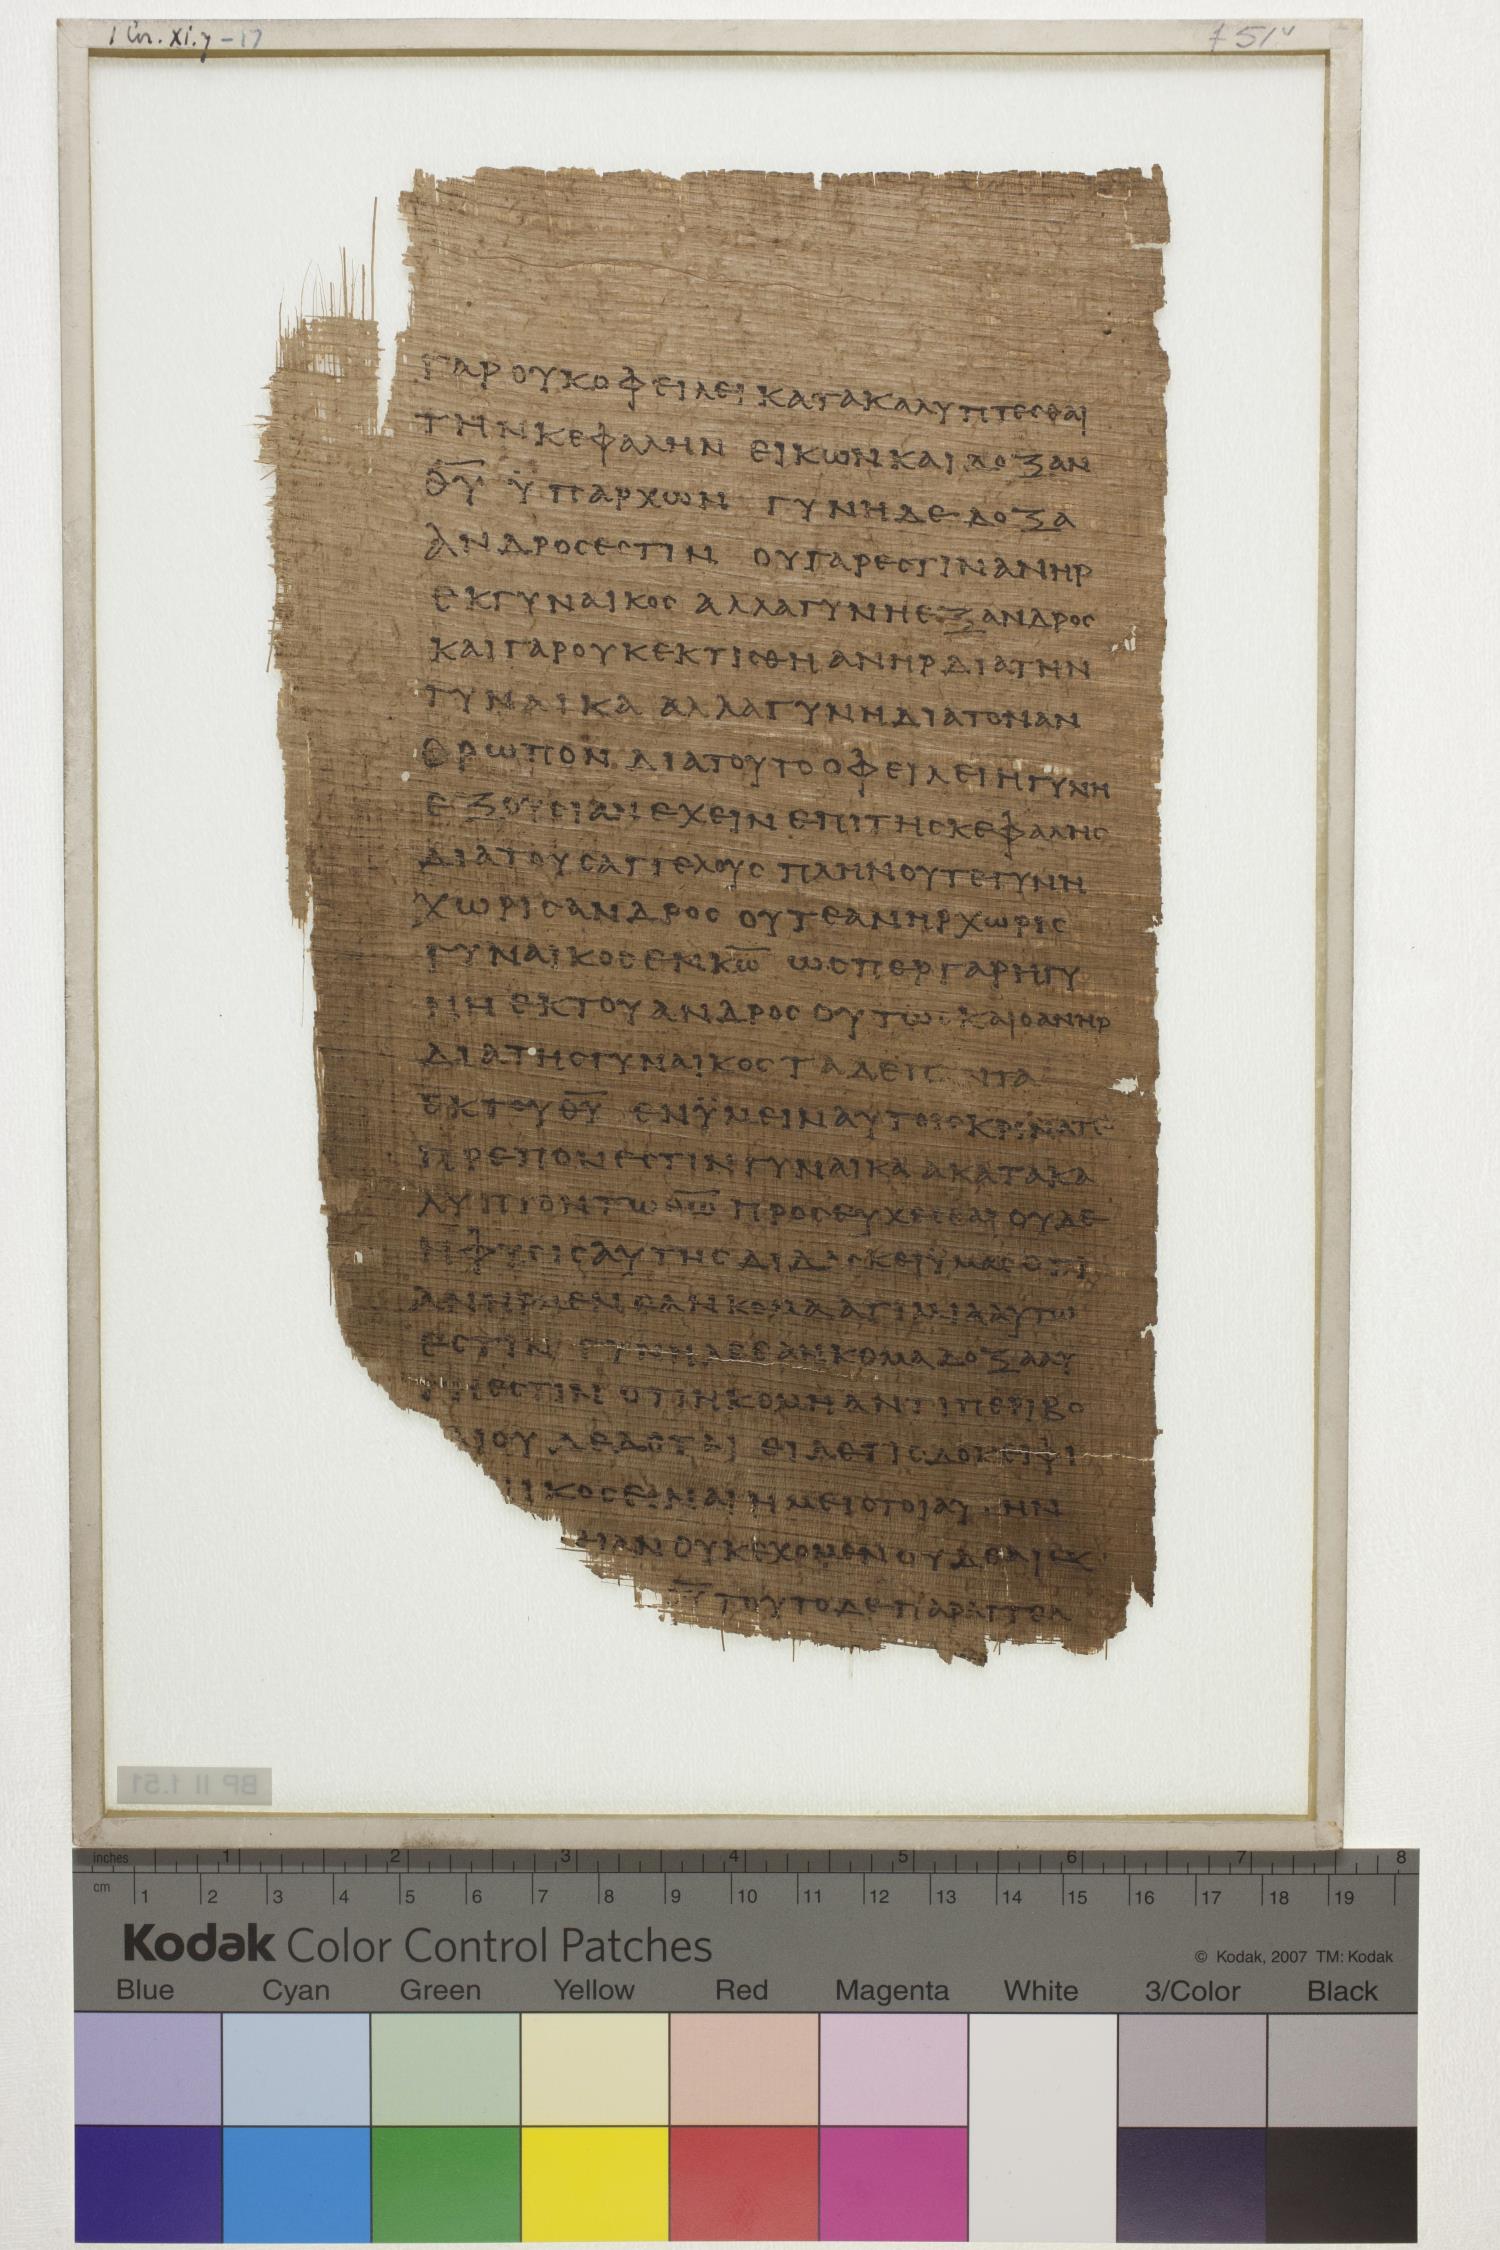 1 Cor. xi. 7-17
f 51v
ΓΑΡ ΟΥΚ ΟΦΕΙΛΕΙ ΚΑΤΑΚΑΛΥΠΤΕΣΘΑΙ
ΤΗΝ ΚΕΦΑΛΗΝ ΕΙΚΩΝ ΚΑΙ ΔΟΞΑΝ
Θ̅Υ̅ ΫΠΑΡΧΩΝ ΓΥΝΗ ΔΕ ΔΟΞΑ
ΑΝΔΡΟΣ ΕΣΤΙΝ ΟΥ ΓΑΡ ΕΣΤΙΝ ΑΝΗΡ
ΕΚ ΓΥΝΑΙΚΟΣ ΑΛΛΑ ΓΥΝΗ ΕΞ ΑΝΔΡΟΣ
ΚΑΙ ΓΑΡ ΟΥΚ ΕΚΤΙΣΘΗ ΑΝΗΡ ΔΙΑ ΤΗΝ
ΓΥΝΑΙΚΑ ΑΛΛΑ ΓΥΝΗ ΔΙΑ ΤΟΝ ΑΝ
ΘΡΩΠΟΝ ΔΙΑ ΤΟΥΤΟ ΟΦΕΙΛΕΙ Η ΓΥΝΗ
ΕΞΟΥΣΙΑΝ ΕΧΕΙΝ ΕΠΙ ΤΗΣ ΚΕΦΑΛΗΣ
ΔΙΑ ΤΟΥΣ ΑΓΓΕΛΟΥΣ ΠΛΗΝ ΟΥΤΕ ΓΥΝΗ
ΧΩΡΙΣ ΑΝΔΡΟΣ ΟΥΤΕ ΑΝΗΡ ΧΩΡΙΣ
ΓΥΝΑΙΚΟΣ ΕΝ Κ̅Ω̅ ΩΣΠΕΡ ΓΑΡ Η ΓΥ
ΝΗ ΕΚ ΤΟΥ ΑΝΔΡΟΣ ΟΥΤΩΣ ΚΑΙ Ο ΑΝΗΡ
ΔΙΑ ΤΗΣ ΓΥΝΑΙΚΟΣ ΤΑ ΔΕ Π ΝΤΑ
ΕΚ ΤΟΥ Θ̅Υ̅ ΕΝ ΫΜΕΙΝ ΑΥΤΟΙΣ ΚΡΙΝΑΤΕ
ΠΡΕΠΟΝ ΕΣΤΙΝ ΓΥΝΑΙΚΑ ΑΚΑΤΑΚΑ
ΛΥΠΤΟΝ ΤΩ Θ̅Ω̅ ΠΡΟΣΕΥΧΕΣΘΑΙ ΟΥΔΕ
Η ΦΥΣΙΣ ΑΥΤΗΣ ΔΙΔΑΣΚΕΙ ΫΜΑΣ ΟΤΙ
ΑΝΗΡ ΜΕΝ ΕΑΝ ΚΟΜΑ ΑΤΙΜΙΑ ΑΥΤΩ
ΕΣΤΙΝ ΓΥΝΗ ΔΕ ΕΑΝ ΚΟΜΑ ΔΟΞΑ ΑΥ
ΤΗ ΕΣΤΙΝ ΟΤΙ Η ΚΟΜΗ ΑΝΤΙ ΠΕΡΙΒΟ
ΑΙΟΥ ΔΕΔΟΤΑΙ ΕΙ ΔΕ ΤΙΣ ΔΟΚΕΙ ΦΙ
ΙΚΟΣ ΕΙΝΑΙ ΗΜΕΙΣ ΤΟΙΑΥ ΗΝ
ΙΑΝ ΟΥΚ ΕΧΟΜΕΝ ΟΥΔΕ ΑΙ ΕΚ
Υ̅ ΤΟΥΤΟ ΔΕ ΠΑΡΑΓΓΕΛ
BP II f.51
inches 1 2 3 4 5 6 7 8
cm 1 2 3 4 5 6 7 8 9 10 11 12 13 14 15 16 17 18 19
Kodak Color Control Patches
© Kodak, 2007 TM: Kodak
Blue Cyan Green Yellow Red Magenta White 3/Color Black